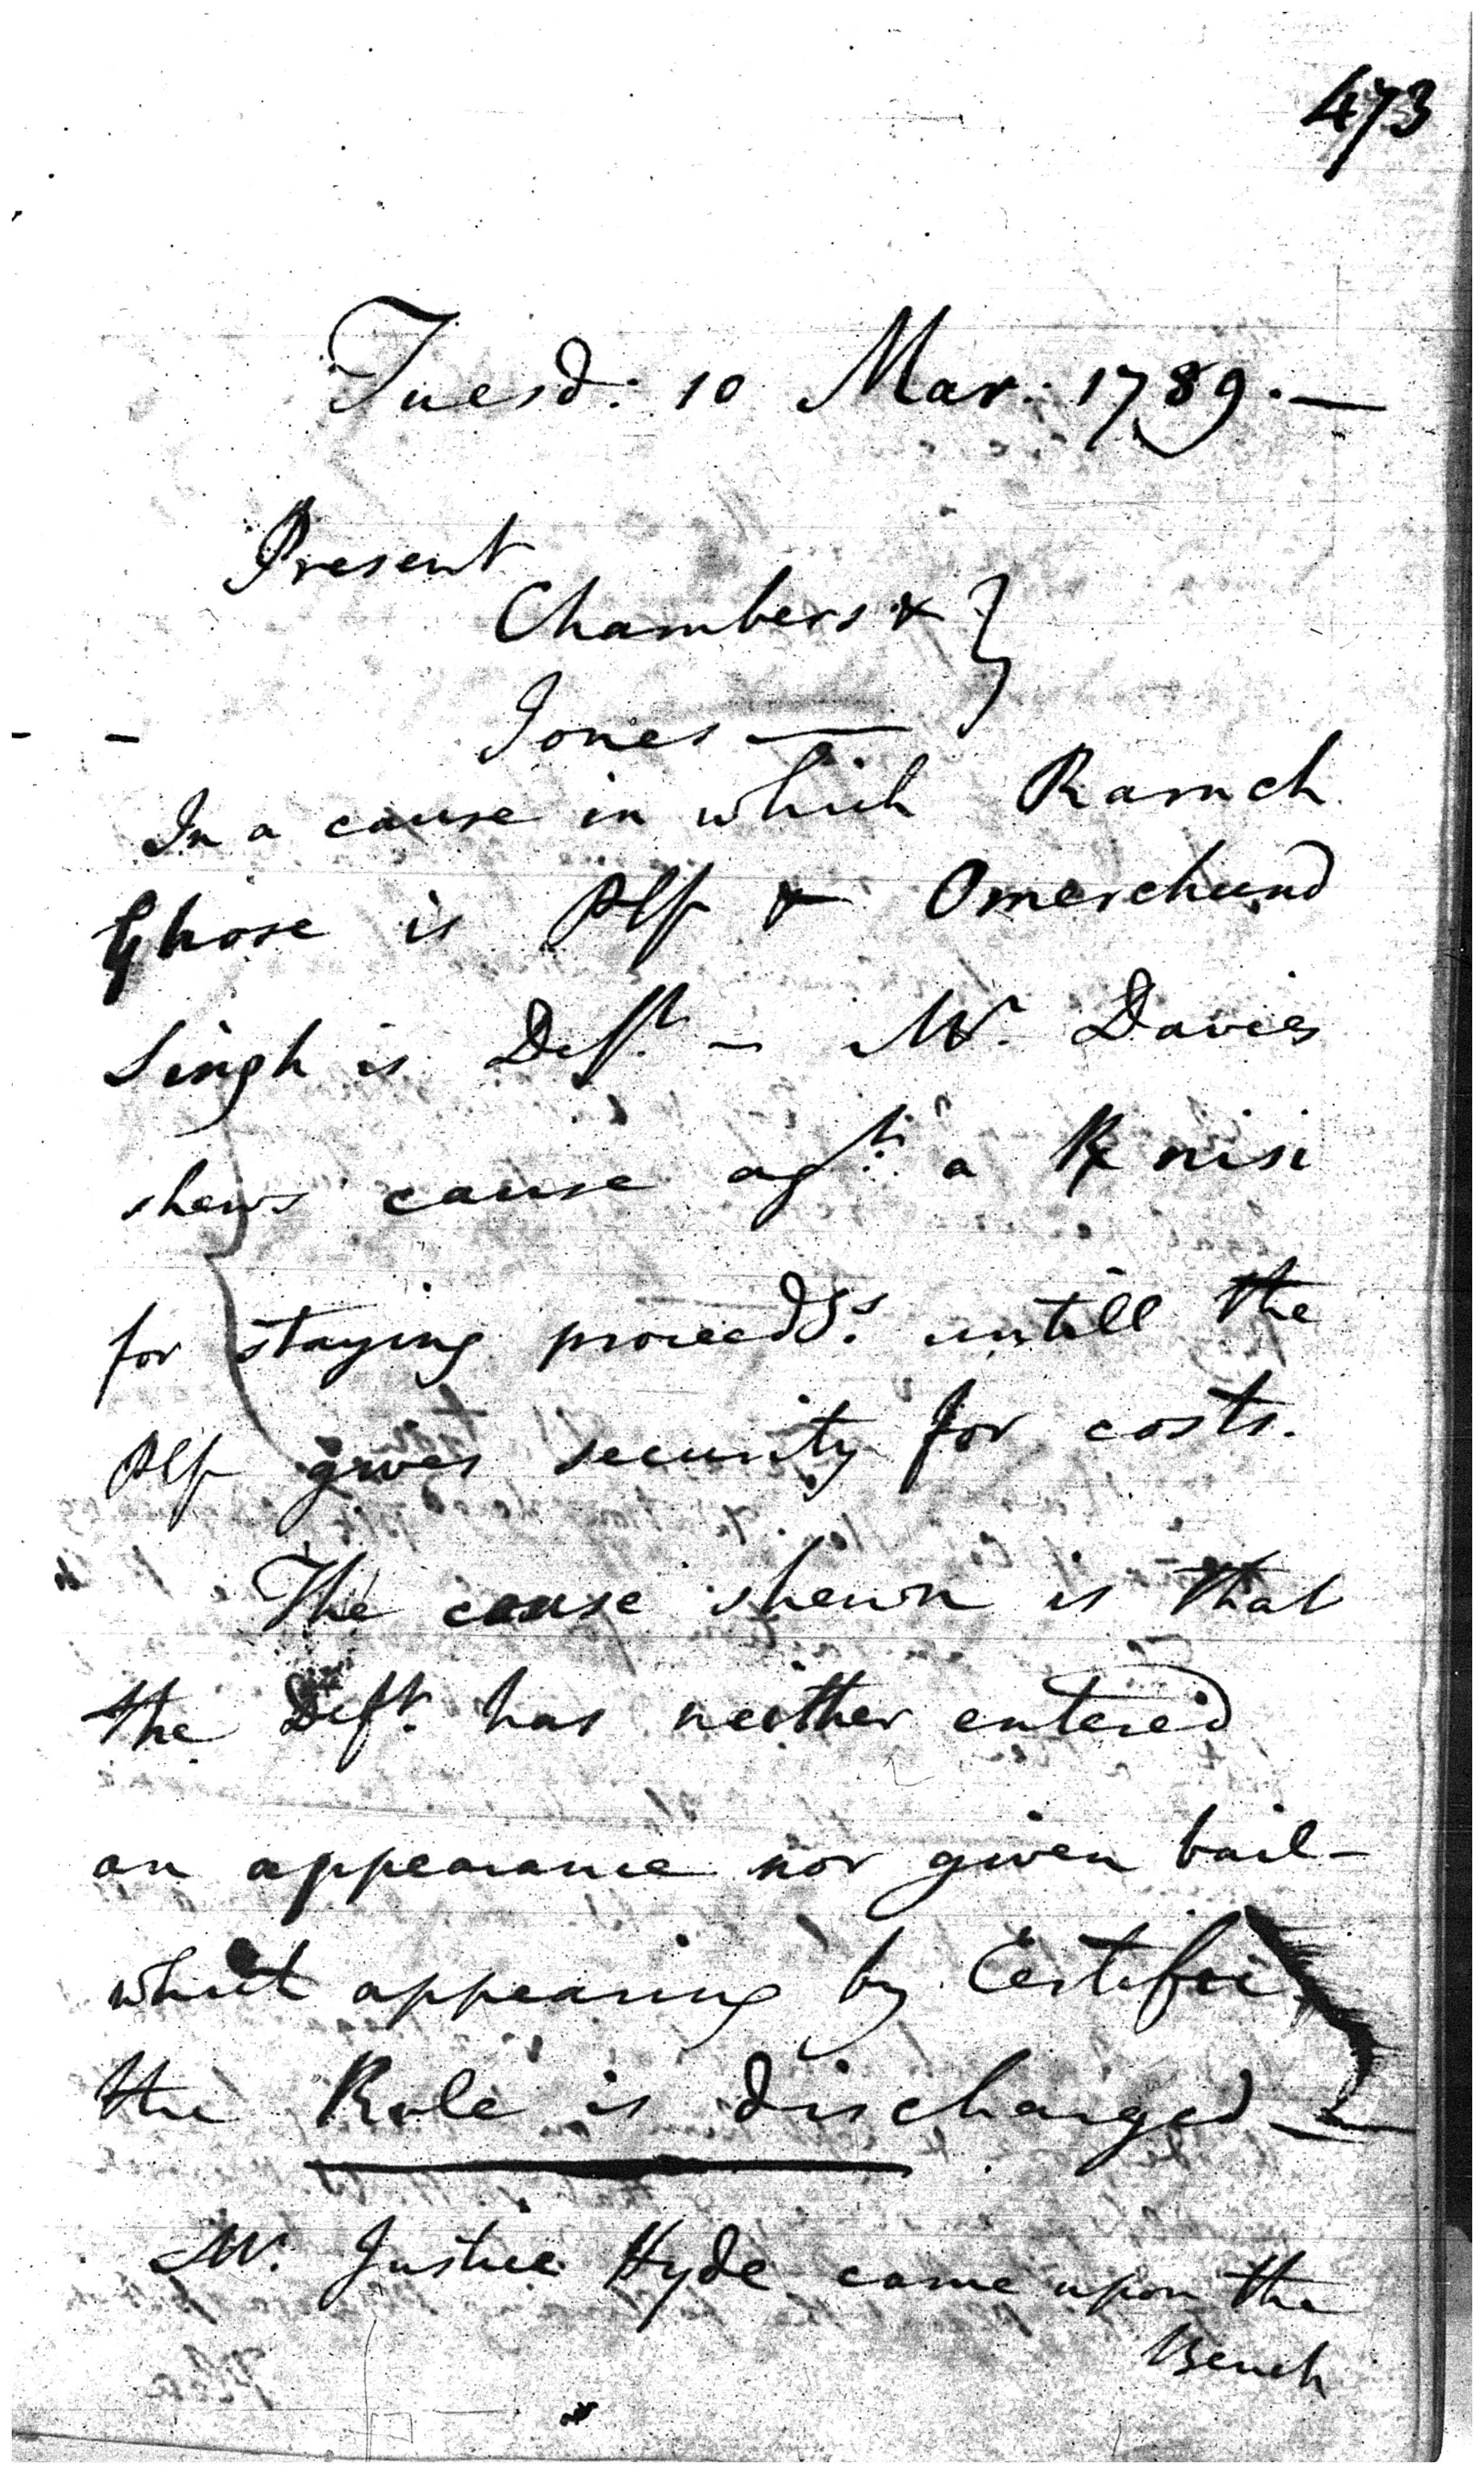 473
Tuesd: 10 Mar: 1789. —
Present
Chambers &
Jones —
In a cause in which Ramch
Ghose is Plf & Omerchund
Singh is Deft. – Mr. Davies
shews cause agt. a R nisi
for staying proceedgs. untill the
Plf gives security for costs.
The cause shewn is that
the Deft. has neither entered
an appearance nor given bail –
which appearing by Certifi
the Rule is discharged —
Mr. Justice Hyde came upon the
Bench